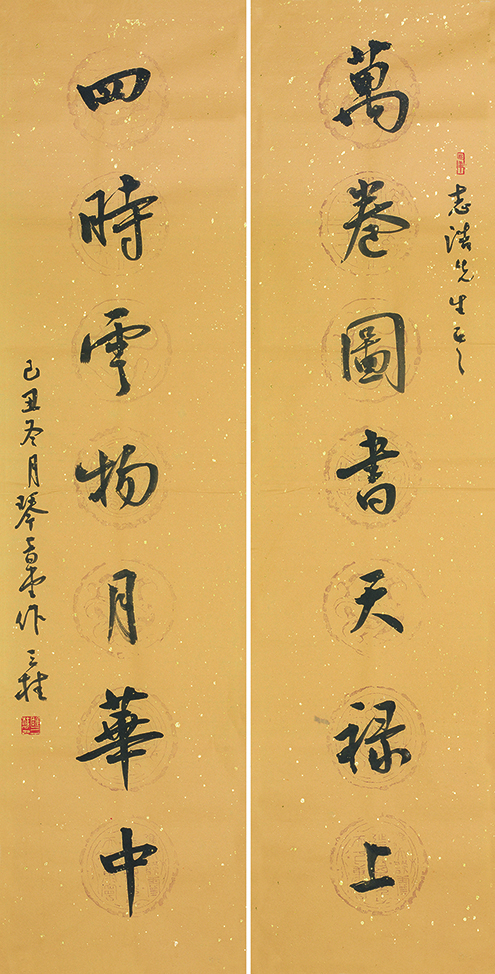 萬卷圖書天禄上
志浩先生正之
四時雲物月華中
己丑冬月琴音堂作